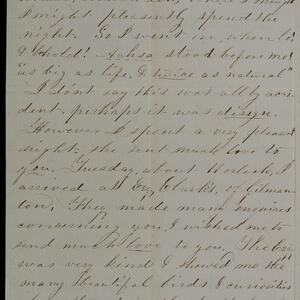 I might pleasently spend the
night. So I went in, when lo!
& behold! Achsa stood before me!
"as big as life, & twice as natural"
I dont say this was all by acci-
dent, perhaps it was design.
However I spent a very pleasant
night, she sent much love to
you. Tuesday, about 4 o'clock, I
arrived at Esq Clark's, of Gilman-
ton. They made many inquiries
concerning you, & wished me to
send much love to you. The
was very kind & showed me the
many beautiful birds & curiosities